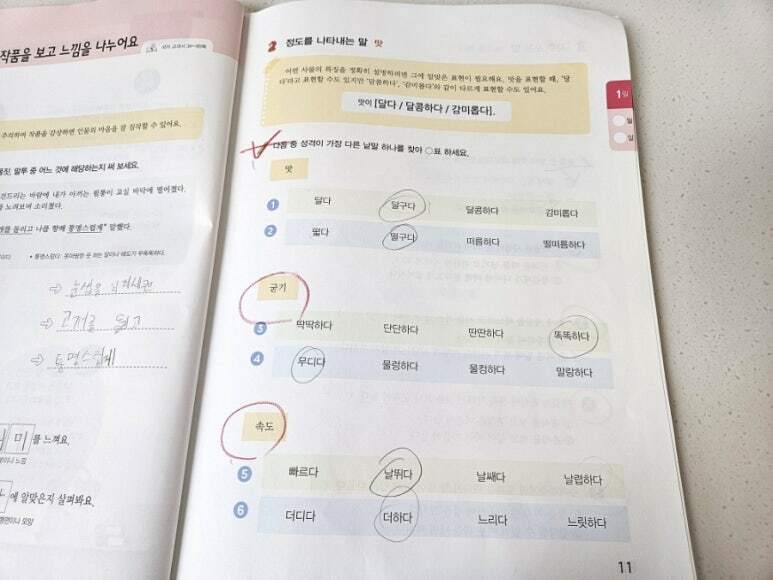 작품을 보고 느낌을 나누어요
주의하며 작품을 감상하면 인물의 마음을 잘 짐작할 수 있어요.
말투 중 어느 것에 해당하는지 써 보세요.
건드리는 바람에 내가 아끼는 필통이 교실 바닥에 떨어졌다.
노려보며 소리쳤다.
들리고 나를 향해 퉁명스럽게" 말했다.
고개를
퉁명스럽게
미 를 느껴요.
에 알맞은지 살펴봐요.
2 정도를 나타내는 말 맛
어떤 사물의 특징을 정확히 설명하려면 그에 알맞은 표현이 필요해요. 맛을 표현할 때, '달
다'라고 표현할 수도 있지만 '달콤하다', '감미롭다'와 같이 다르게 표현할 수도 있어요.
맛이 [달다 / 달콤하다 / 감미롭다].
1일
월
일
다음 중 성격이 가장 다른 낱말 하나를 찾아 ○표 하세요.
맛
1 달다 달구다 달콤하다 감미롭다
2 떫다 떨구다 떠름하다 떨떠름하다
굳기
3 딱딱하다 단단하다 딴딴하다 똑똑하다
4 무디다 물렁하다 물컹하다 말랑하다
속도
5 빠르다 날뛰다 날쌔다 날렵하다
6 더디다 더하다 느리다 느릿하다
11